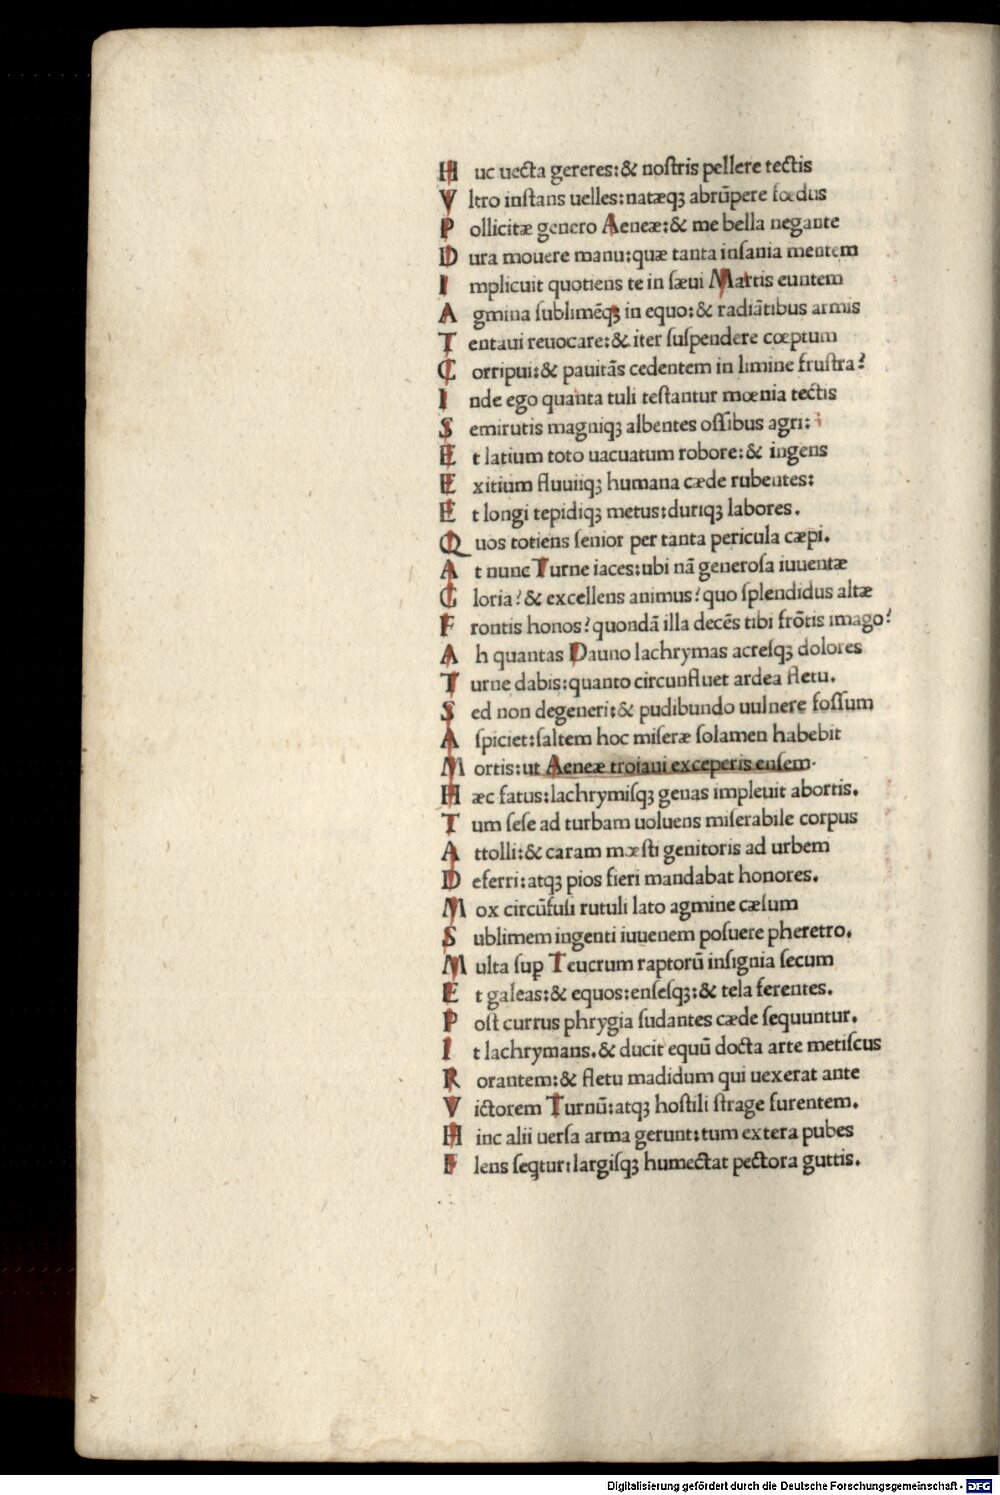 Huc uecta gereres:& nostris pellere tectis
Vltro instans uelles:natæq; abrūpere fœdus
Pollicitæ genero Aeneæ:& me bella negante
Dura mouere manu:quæ tanta insania mentem
Implicuit quotiens te in sæui Martis euntem
Agmina sublimēq; in equo:& radiātibus armis
Tentaui reuocare:& iter suspendere cœptum
Corripui:& pauitās cedentem in limine frustra?
Inde ego quanta tuli testantur mœnia tectis
Semirutis magniq; albentes ossibus agri:
Et latium toto uacuatum robore:& ingens
Exitium fluuiiq; humana cæde rubentes:
Et longi tepidiq; metus:duriq; labores.
Quos totiens senior per tanta pericula cæpi.
At nunc Turne iaces:ubi nā generosa iuuentæ
Gloria? & excellens animus? quo splendidus altæ
Frontis honos? quondā illa decēs tibi frōtis imago?
Ah quantas Dauno lachrymas acresq; dolores
Turne dabis:quanto circunfluet ardea fletu.
Sed non degeneri:& pudibundo uulnere fossum
Aspiciet:saltem hoc miseræ solamen habebit
Mortis:ut Aeneæ troiani exceperis ensem.
Hæc fatus:lachrymisq; genas impleuit abortis.
Tum sese ad turbam uoluens miserabile corpus
Attolli:& caram mœsti genitoris ad urbem
Deferri:atq; pios fieri mandabat honores.
Mox circūfusi rutuli lato agmine cæsum
Sublimem ingenti iuuenem posuere pheretro.
Multa sup̱ Teucrum raptorū insignia secum
Et galeas:& equos:ensesq;:& tela ferentes.
Post currus phrygia sudantes cæde sequuntur.
It lachrymans.& ducit equū docta arte metiscus
Rorantem:& fletu madidum qui uexerat ante
Victorem Turnū:atq; hostili strage furentem.
Hinc alii uersa arma gerunt:tum extera pubes
Flens seq̱tur:largisq; humectat pectora guttis.
Digitalisierung gefördert durch die Deutsche Forschungsgemeinschaft - DFG